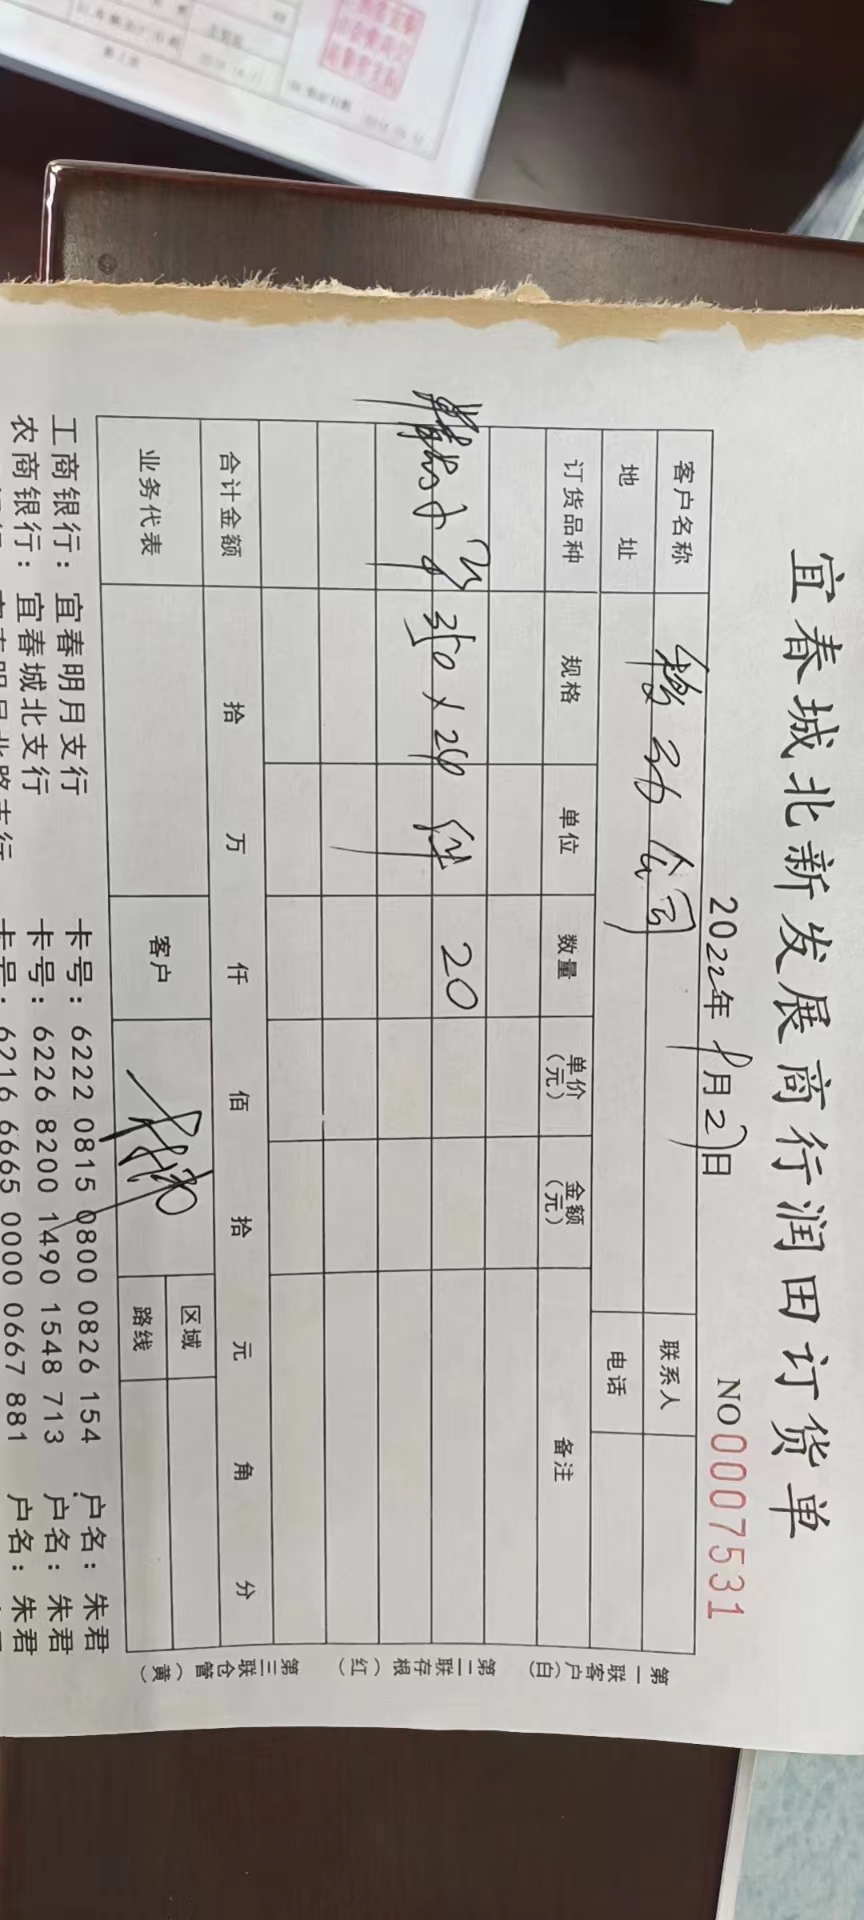 宜春城北新发展商行润田订货单
2022年9月2日 NO0007531
客户名称 联系人
地 址 电话
订货品种 规格 单位 数量 单价(元) 金额(元) 备注
350×24 件 20
合计金额 拾 万 仟 佰 拾 元 角 分
业务代表 客户 区域
路线
第一联客户(白) 第二联存根(红) 第三联仓管(黄)
工商银行：宜春明月支行 卡号：6222 0815 0800 0826 154 户名：朱君
农商银行：宜春城北支行 卡号：6226 8200 1490 1548 713 户名：朱君
卡号：6216 6665 0000 0667 881 户名：朱君